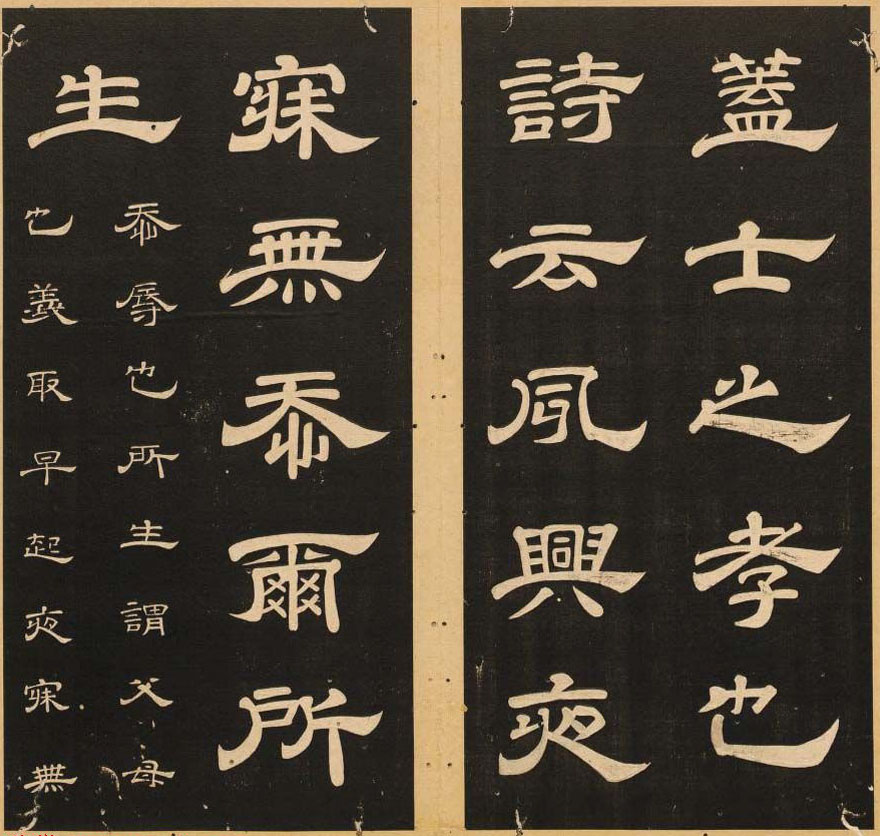 蓋士之孝也
詩云夙興夜
寐無忝爾所
生忝辱也所生謂父母
也義取早起夜寐無